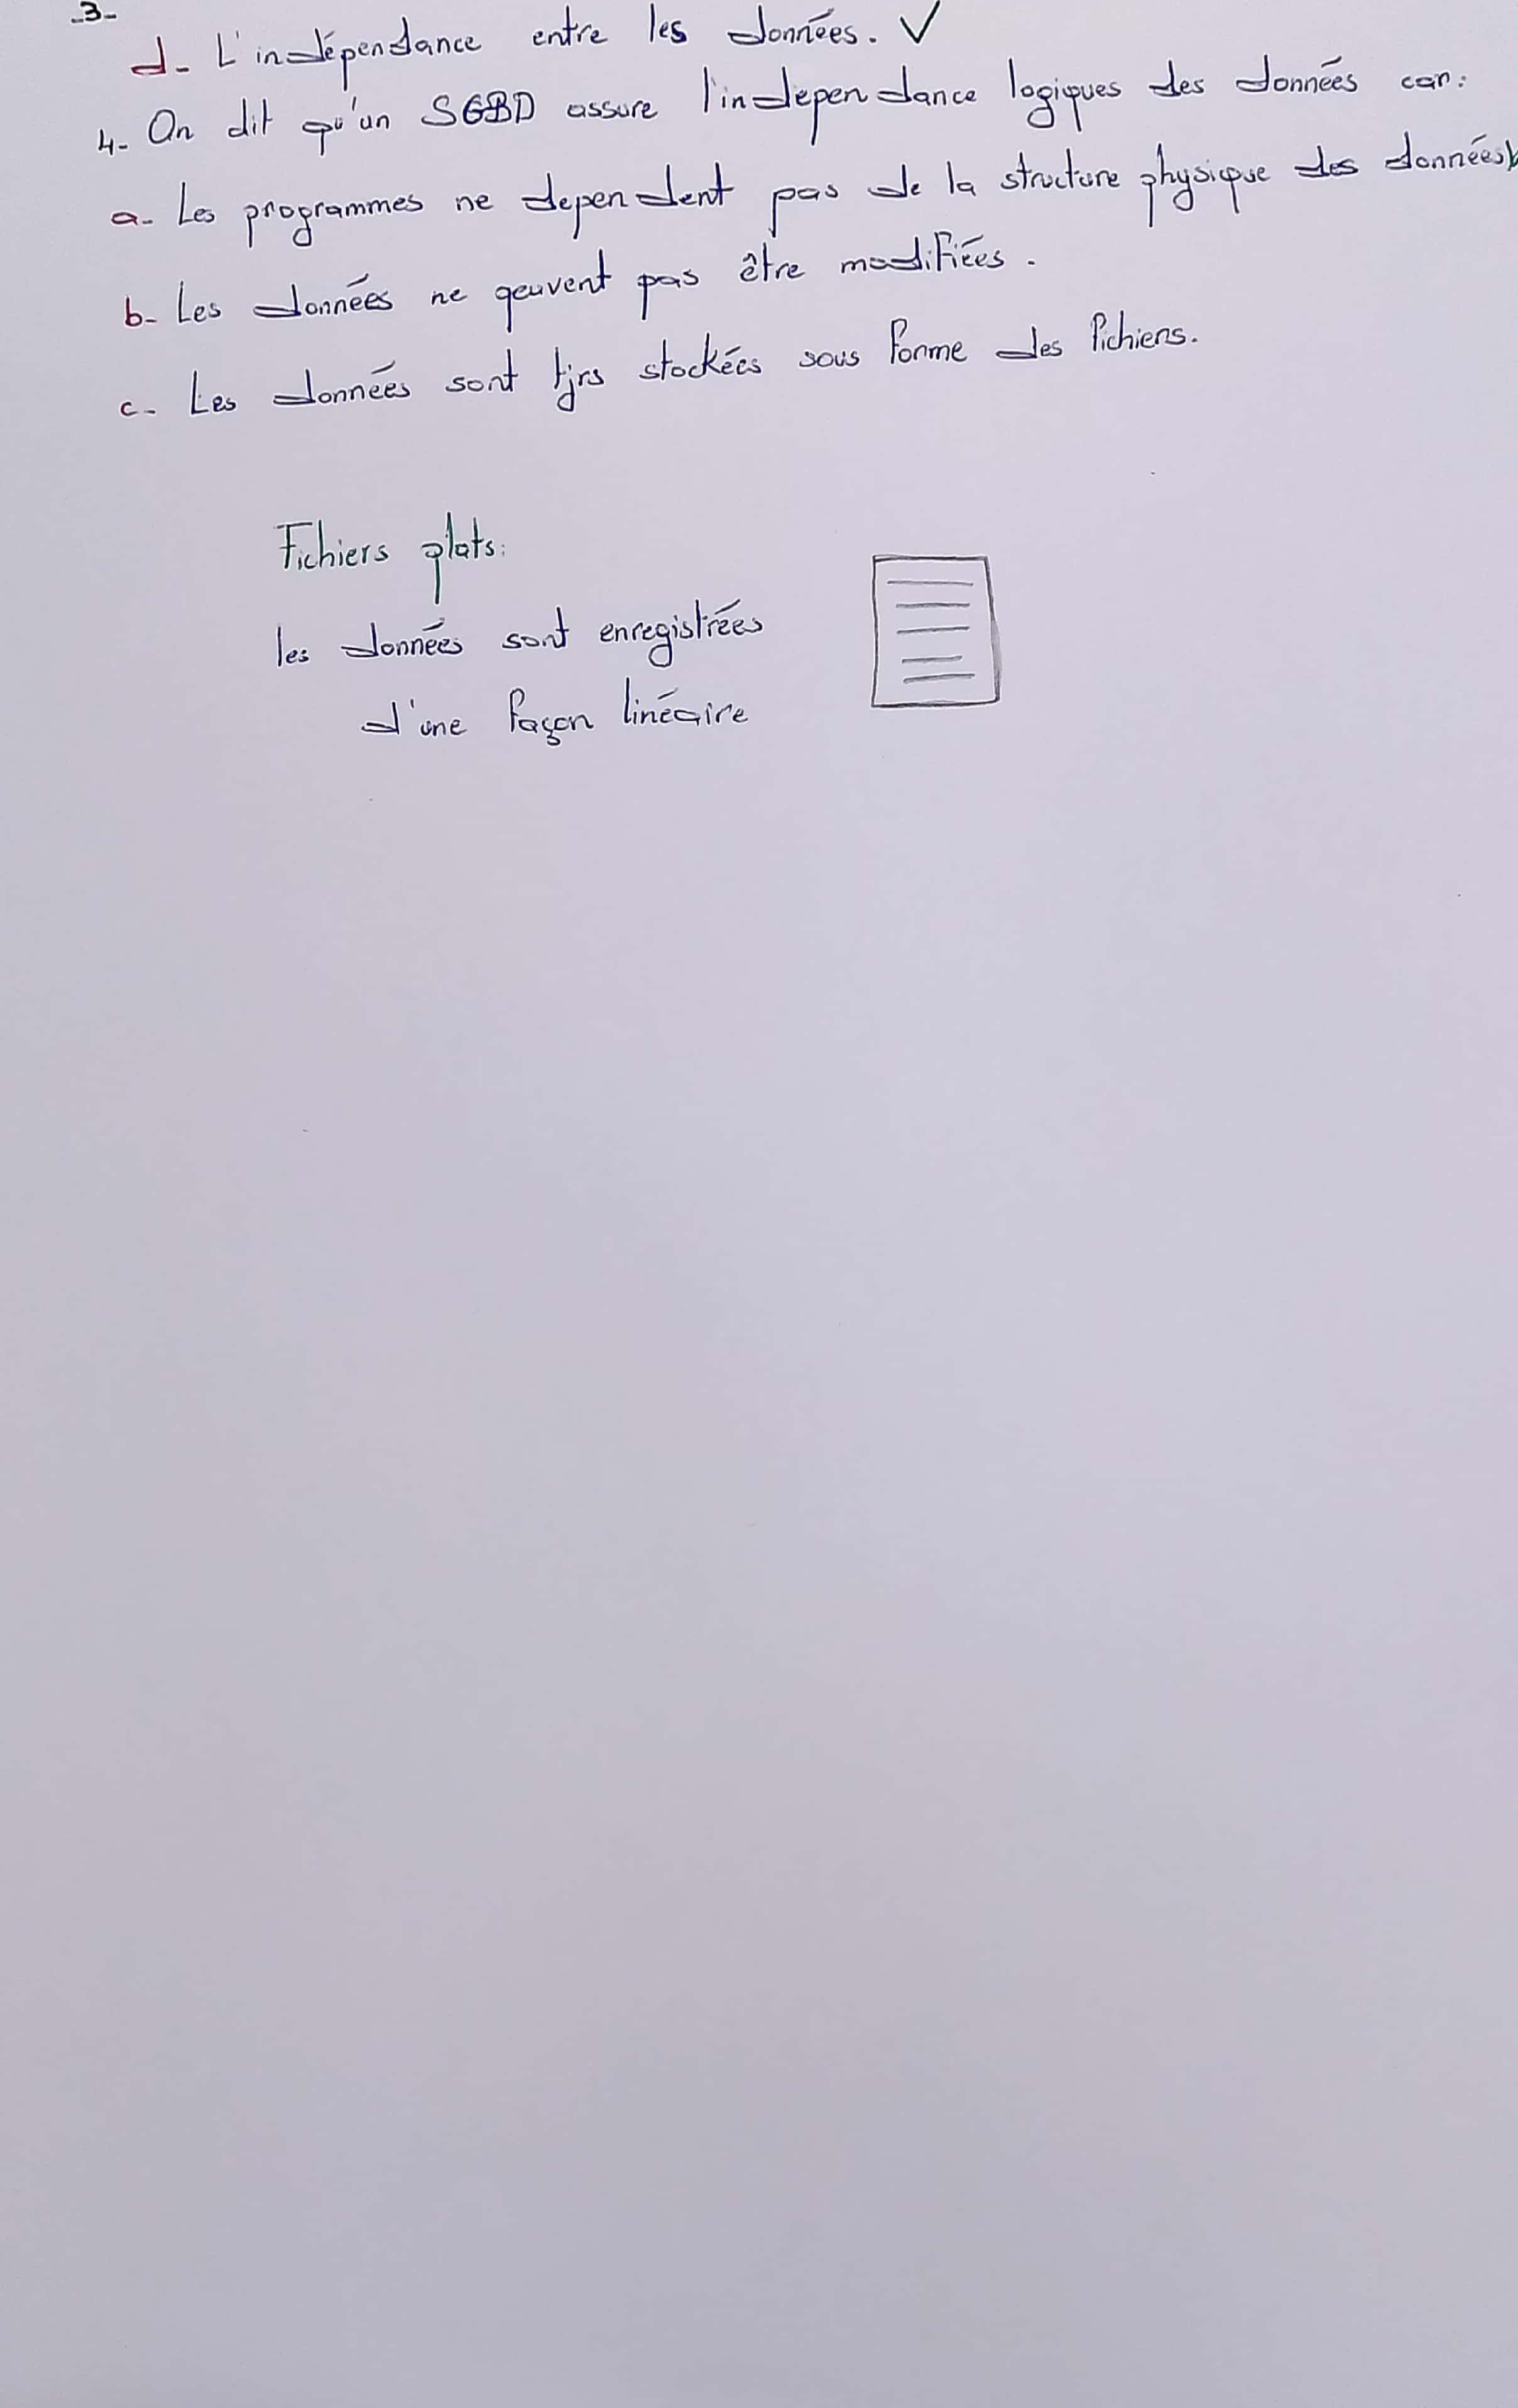 -3-
d- L'indépendance entre les données. ✓
4- On dit qu'un SGBD assure l'independance logiques des données car:
a- Les programmes ne dependent pas de la structure physique des données
b- Les données ne peuvent pas être modifiées.
c- Les données sont tjrs stockées sous forme des fichiers.
Fichiers plats:
les données sont enregistrées
d'une façon linéaire